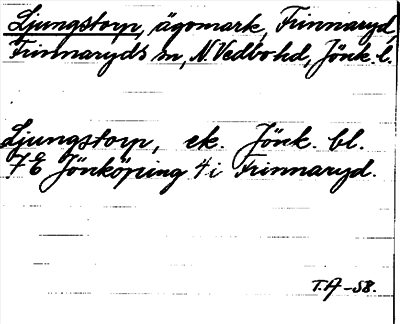 Ljungstorp, ägomark, Frinnaryd,
Frinnaryds sn, N. Vedbo hd, Jönk. l.
Ljungstorp, ek. Jönk. bl.
7 E Jönköping 4 i Frinnaryd.
T.A -58.